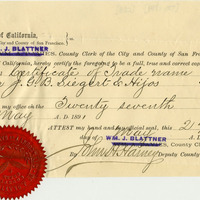 of California,
City and County of San Francisco.
WM. J. BLATTNER
County Clerk of the City and County of San Fran
California, hereby certify the foregoing to be a full, true and correct
Certificate of Trade name
J. G. B. Siegert & Hijos
my office on the Twenty seventh
May A.D. 189
ATTEST my hand and official seal, this 2
May A.D. 189
WM. J. BLATTNER
County Clerk
By John H. Harney Deputy County